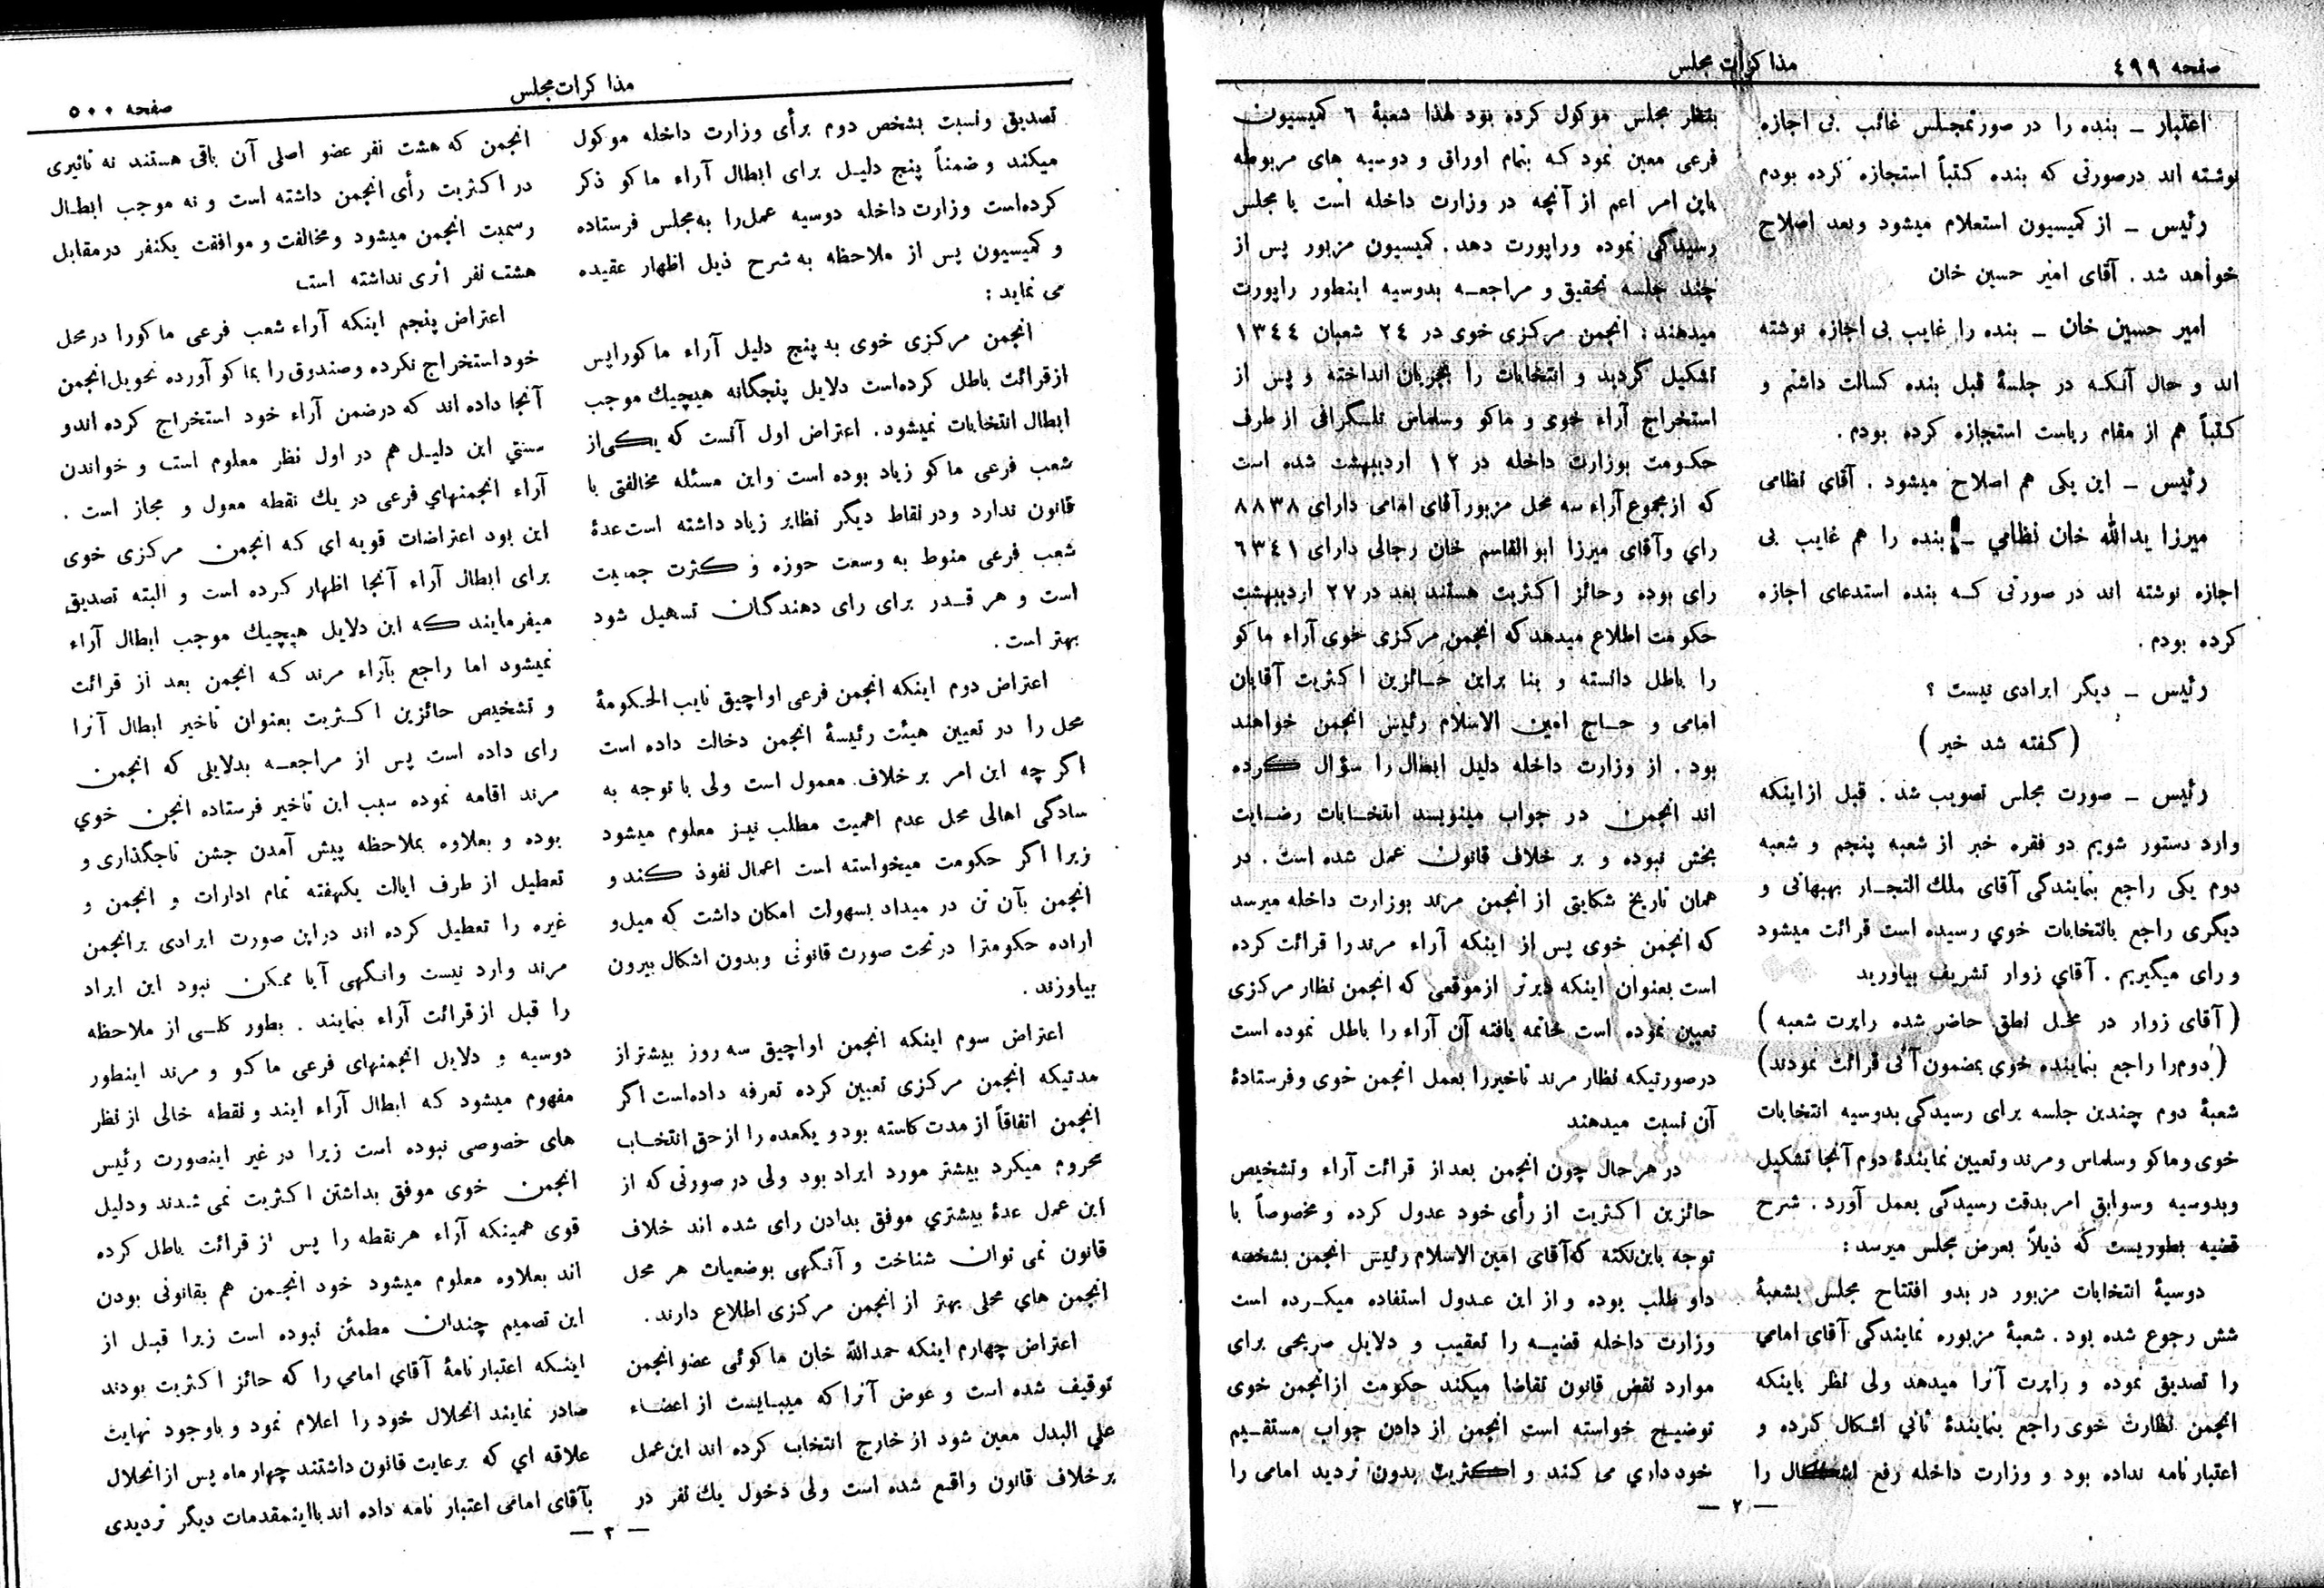 صفحه ٤٩٩
مذاکرات مجلس
اعتبار ـ بنده را در صورتمجلس غائب بی اجازه
نوشته اند درصورتی که بنده کتباً استجازه کرده بودم
رئیس ـ از کمیسیون استعلام میشود وبعد اصلاح
خواهد شد . آقای امیر حسین خان
امیر حسین خان ـ بنده را غایب بی اجازه نوشته
اند و حال آنکه در جلسهٔ قبل بنده کسالت داشتم و
کتباً هم از مقام ریاست استجازه کرده بودم .
رئیس ـ این یکی هم اصلاح میشود . آقاي نظامی
میرزا یدالله خان نظامي ـ بنده را هم غایب بی
اجازه نوشته اند در صورتی که بنده استدعای اجازه
کرده بودم .
رئیس ـ دیگر ایرادی نیست ؟
( گفته شد خیر )
رئیس ـ صورت مجلس تصویب شد . قبل ازاینکه
وارد دستور شویم دو فقره خبر از شعبه پنجم و شعبه
دوم یکی راجع بنمایندگی آقای ملك التجار بهبهانی و
دیگری راجع بانتخابات خوي رسیده است قرائت میشود
و رای میگیریم . آقاي زوار تشریف بیاورید
( آقای زوار در محل نطق حاضر شده راپرت شعبه )
( دوم‌را راجع بنماینده خوی بمضمون آتی قرائت نمودند )
شعبهٔ دوم چندین جلسه برای رسیدگی بدوسیه انتخابات
خوی وماکو وسلماس ومرند وتعیین نمایندهٔ دوم آنجا تشکیل
وبدوسیه وسوابق امر بدقت رسیدگی بعمل آورد . شرح
قضیه بطوریست که ذیلاً بعرض مجلس میرسد :
دوسیهٔ انتخابات مزبور در بدو افتتاح مجلس بشعبهٔ
شش رجوع شده بود . شعبهٔ مزبوره نمایندگی آقای امامي
را تصدیق نموده و راپرت آنرا میدهد ولی نظر باینکه
انجمن نظارت خوی راجع بنمایندهٔ ثاني اشکال کرده و
اعتبار نامه نداده بود و وزارت داخله رفع اشکال را
بنظر مجلس موکول کرده بود لهذا شعبهٔ ٦ کمیسیون
فرعی معین نمود که بتمام اوراق و دوسیه های مربوطه
باین امر اعم از آنچه در وزارت داخله است یا مجلس
رسیدگی نموده وراپورت دهد . کمیسیون مزبور پس از
چند جلسه تحقیق و مراجعه بدوسیه اینطور راپورت
میدهند : انجمن مرکزی خوی در ٢٤ شعبان ١٣٤٤
تشکیل گردید و انتخابات را بجریان انداخته و پس از
استخراج آراء خوی و ماکو وسلماس تلگرافی از طرف
حکومت بوزارت داخله در ١٢ اردیبهشت شده است
که ازمجموع آراء سه محل مزبور آقای امامی دارای ٨٨٣٨
راي وآقای میرزا ابوالقاسم خان رجالی دارای ٦٣٤١
رای بوده وحائز اکثریت هستند بعد در ٢٧ اردیبهشت
حکومت اطلاع میدهد که انجمن مرکزی خوی آراء ماکو
را باطل دانسته و بنا براین حائزین اکثریت آقایان
امامی و حاج امین الاسلام رئیس انجمن خواهند
بود . از وزارت داخله دلیل ابطال را سؤال کرده
اند انجمن در جواب مینویسد انتخابات رضایت
بخش نبوده و بر خلاف قانون عمل شده است . در
همان تاریخ شکایتی از انجمن مرند بوزارت داخله میرسد
که انجمن خوی پس از اینکه آراء مرند را قرائت کرده
است بعنوان اینکه دیرتر ازموقعی که انجمن نظار مرکزی
تعیین نموده است خاتمه یافته آن آراء را باطل نموده است
درصورتیکه نظار مرند تاخیررا بعمل انجمن خوی وفرستادهٔ
آن نسبت میدهند
در هرحال چون انجمن بعد از قرائت آراء وتشخیص
حائزین اکثریت از رأی خود عدول کرده و مخصوصاً با
توجه باین‌نکته که‌آقای امین الاسلام رئیس انجمن بشخصه
داو طلب بوده و از این عدول استفاده میکرده است
وزارت داخله قضیه را تعقیب و دلایل صریحی برای
موارد نقض قانون تقاضا میکند حکومت ازانجمن خوی
توضیح خواسته است انجمن از دادن جواب مستقیم
خودداري می کند و اکثریت بدون تردید امامی را
— ٢ —
مذاکرات مجلس
صفحه ٥٠٠
تصدیق ونسبت بشخص دوم برأی وزارت داخله موکول
میکند و ضمناً پنج دلیل برای ابطال آراء ماکو ذکر
کرده‌است وزارت داخله دوسیه عمل‌را به‌مجلس فرستاده
و کمیسیون پس از ملاحظه به شرح ذیل اظهار عقیده
می نماید :
انجمن مرکزی خوی به پنج دلیل آراء ماکوراپس
ازقرائت باطل کرده‌است دلایل پنجگانه هیچیك موجب
ابطال انتخابات نمیشود . اعتراض اول آنست که یکی‌از
شعب فرعی ماکو زیاد بوده است واین مسئله مخالفتی با
قانون ندارد ودر نقاط دیگر نظایر زیاد داشته است عدهٔ
شعب فرعی منوط به وسعت حوزه و کثرت جمعیت
است و هر قدر برای رای دهندگان تسهیل شود
بهتر است .
اعتراض دوم اینکه انجمن فرعی اواچیق نایب الحکومهٔ
محل را در تعیین هیئت رئیسهٔ انجمن دخالت داده است
اگر چه این امر بر خلاف معمول است ولی با توجه به
سادگی اهالی محل عدم اهمیت مطلب نیز معلوم میشود
زیرا اگر حکومت میخواسته است اعمال نفوذ کند و
انجمن بآن تن در میداد بسهولت امکان داشت که میل‌و
اراده حکومترا درتحت صورت قانونی وبدون اشکال بیرون
بیاوزند .
اعتراض سوم اینکه انجمن اواچیق سه روز بیشتر از
مدتیکه انجمن مرکزی تعیین کرده تعرفه داده‌است اگر
انجمن اتفاقاً از مدت کاسته بود و یکعده را ازحق انتخاب
محروم میکرد بیشتر مورد ایراد بود ولی در صورتی که از
این عمل عدهٔ بیشتري موفق بدادن رای شده اند خلاف
قانون نمی توان شناخت و آنگهی بوضعیات هر محل
انجمن هاي محلی بهتر از انجمن مرکزی اطلاع دارند .
اعتراض چهارم اینکه حمدالله خان ماکوئی عضو انجمن
توقیف شده است و عوض آنرا که میبایست از اعضاء
علي البدل معین شود از خارج انتخاب کرده اند این‌عمل
برخلاف قانون واقع شده است ولی دخول یك نفر در
انجمن که هشت نفر عضو اصلی آن باقی هستند نه تاثیری
در اکثریت رأی انجمن داشته است و نه موجب ابطال
رسمیت انجمن میشود ومخالفت و موافقت یکنفر درمقابل
هشت نفر اثری نداشته است
اعتراض پنجم اینکه آراء شعب فرعی ماکورا درمحل
خود استخراج نکرده وصندوق را بماکو آورده تحویل انجمن
آنجا داده اند که درضمن آراء خود استخراج کرده اندو
سستي این دلیل هم در اول نظر معلوم است و خواندن
آراء انجمنهاي فرعی در یك نقطه معول و مجاز است .
این بود اعتراضات قویه ای که انجمن مرکزی خوی
برای ابطال آراء آنجا اظهار کرده است و البته تصدیق
میفرمایند که این دلایل هیچیك موجب ابطال آراء
نمیشود اما راجع بآراء مرند که انجمن بعد از قرائت
و تشخیص حائزین اکثریت بعنوان تاخیر ابطال آنرا
رای داده است پس از مراجعه بدلایلی که انجمن
مرند اقامه نموده سبب این تاخیر فرستاده انجن خوي
بوده و بعلاوه بملاحظه پیش آمدن جشن تاجگذاری و
تعطیل از طرف ایالت یکهفته تمام ادارات و انجمن و
غیره را تعطیل کرده اند دراین صورت ایرادی برانجمن
مرند وارد نیست وانگهی آیا ممکن نبود این ایراد
را قبل ازقرائت آراء بنمایند . بطور کلی از ملاحظه
دوسیه و دلایل انجمنهای فرعی ماکو و مرند اینطور
مفهوم میشود که ابطال آراء ایند و نقطه خالی از نظر
های خصوصی نبوده است زیرا در غیر اینصورت رئیس
انجمن خوی موفق بداشتن اکثریت نمی شدند ودلیل
قوی همینکه آراء هرنقطه را پس از قرائت باطل کرده
اند بعلاوه معلوم میشود خود انجمن هم بقانونی بودن
این تصمیم چندان مطمئن نبوده است زیرا قبل از
اینکه اعتبار نامهٔ آقاي امامي را که حائز اکثریت بودند
صادر نمایند انحلال خود را اعلام نمود و باوجود نهایت
علاقه اي که برعایت قانون داشتند چهار ماه پس ازانحلال
بآقای امامی اعتبار نامه داده اند بااینمقدمات دیگر تردیدی
— ٣ —